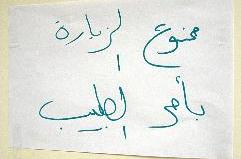 ممنوع الزيارة
بأمر الطبيب